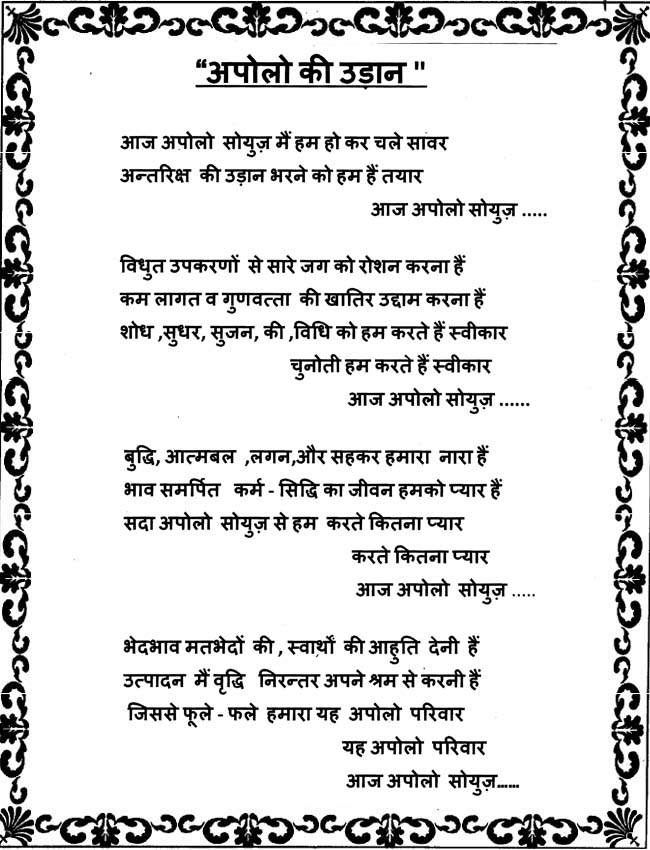 “अपोलो की उड़ान "
आज अपोलो सोयुज़ मैं हम हो कर चले सावर
अन्तरिक्ष की उड़ान भरने को हम हैं तयार
आज अपोलो सोयुज़ .....
विधुत उपकरणों से सारे जग को रोशन करना हैं
कम लागत व गुणवत्ता की खातिर उद्दाम करना हैं
शोध ,सुधर, सुजन, की ,विधि को हम करते हैं स्वीकार
चुनोती हम करते हैं स्वीकार
आज अपोलो सोयुज़ ......
बुद्धि, आत्मबल ,लगन,और सहकर हमारा नारा हैं
भाव समर्पित कर्म - सिद्धि का जीवन हमको प्यार हैं
सदा अपोलो सोयुज़ से हम करते कितना प्यार
करते कितना प्यार
आज अपोलो सोयुज़ .....
भेदभाव मतभेदों की , स्वार्थों की आहुति देनी हैं
उत्पादन मैं वृद्धि निरन्तर अपने श्रम से करनी हैं
जिससे फूले - फले हमारा यह अपोलो परिवार
यह अपोलो परिवार
आज अपोलो सोयुज़......